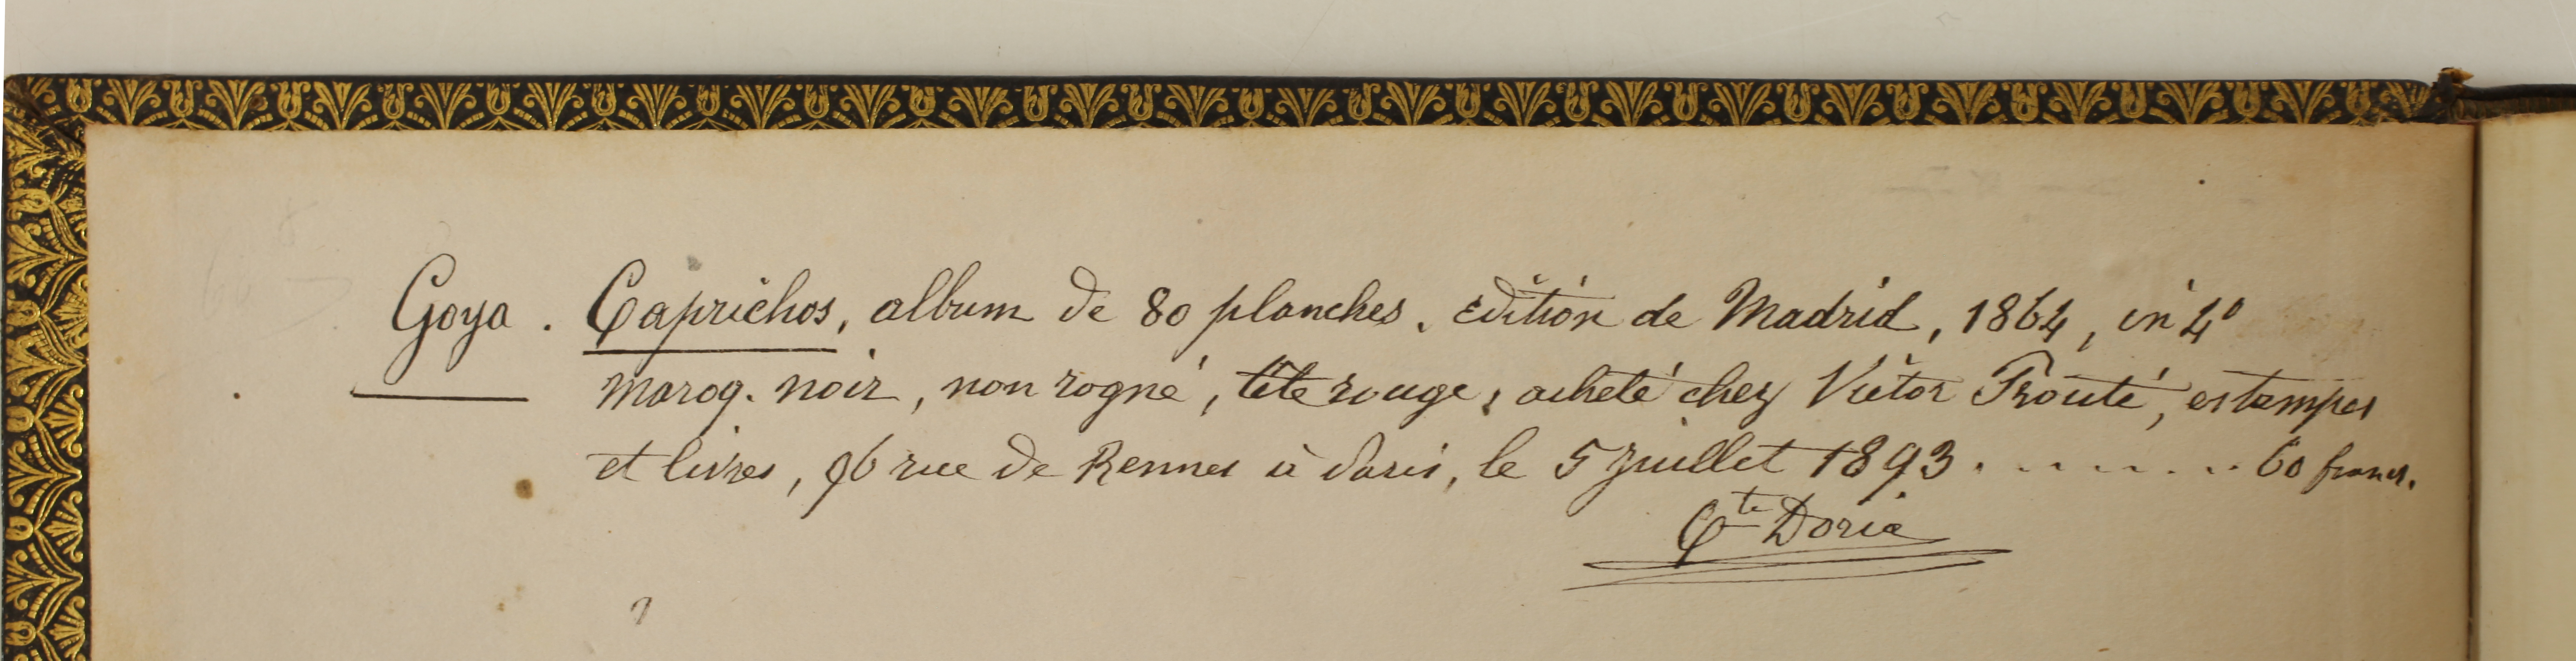 Goya. Caprichos, album de 80 planches, édition de Madrid, 1864, in 4°
maroq. noir, non rogné, tête rouge, acheté chez Victor Prouté, estampes
et livres, 96 rue de Rennes à Paris, le 5 juillet 1893. . . . . . . . 60 francs.
Cte Doria